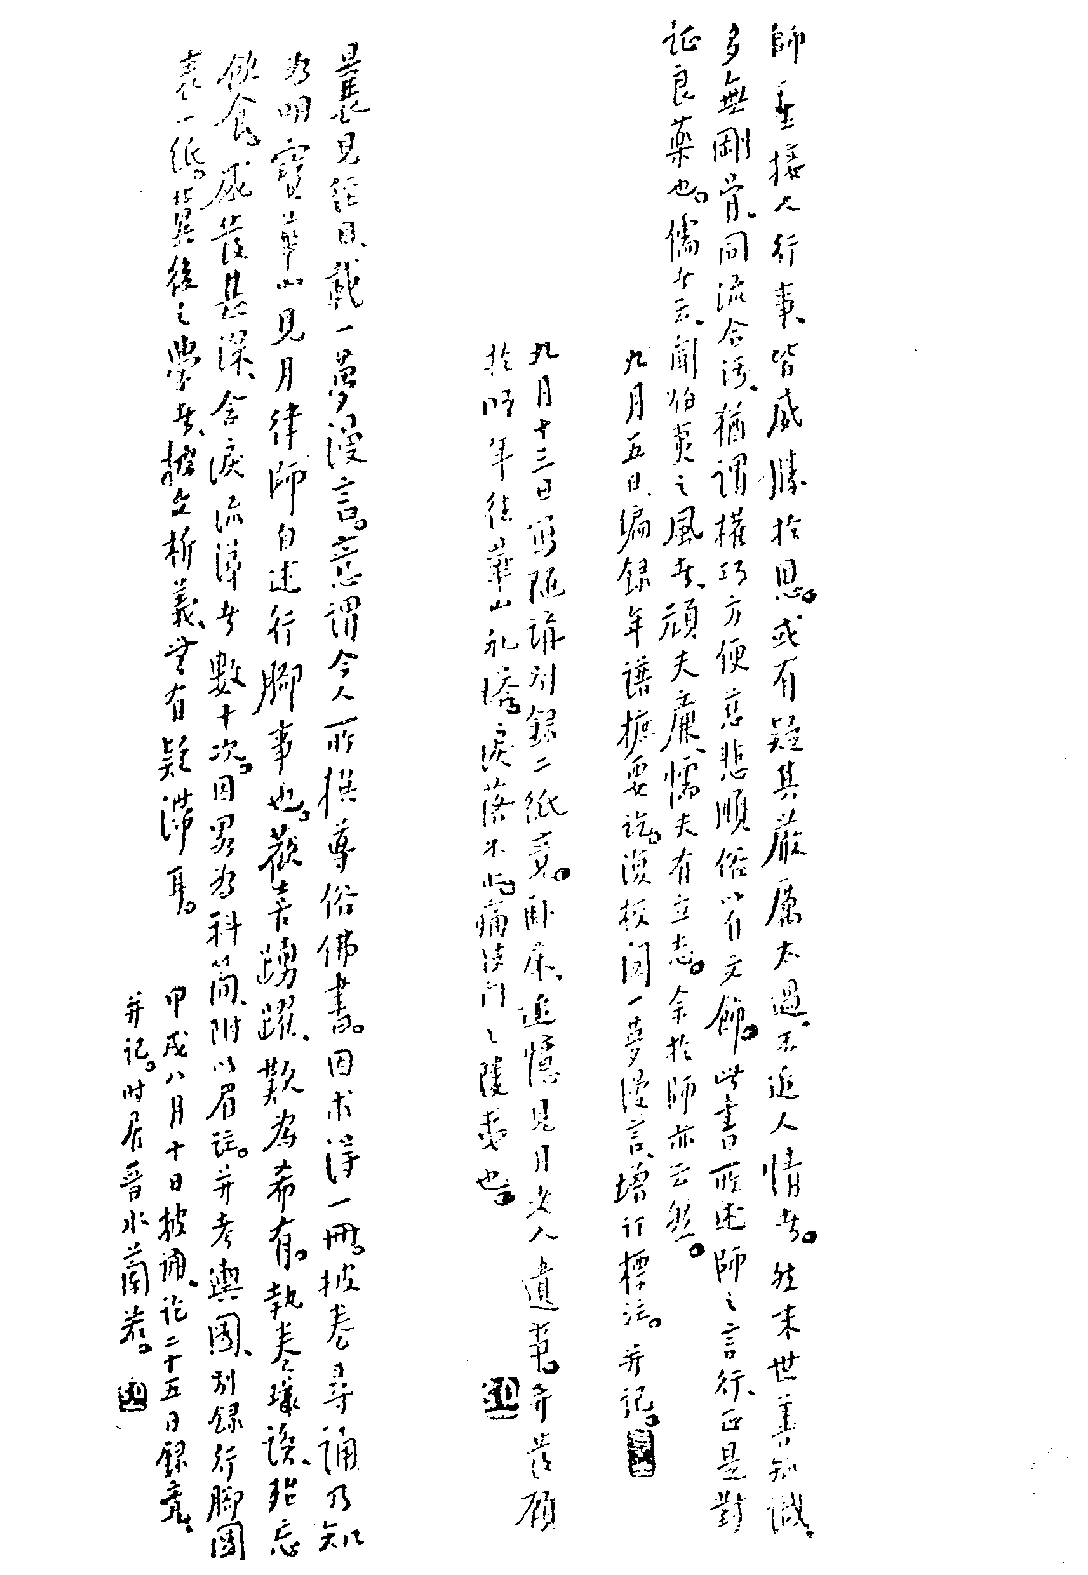 師一生接人行事、皆威勝於恩。或有疑其嚴厲太過、不近人情者。然末世善知識、
多無剛骨、同流合污、猶謂權巧方便、慈悲順俗、以自文飾。此書所述師之言行、正是對
症良藥也。儒者云、聞伯夷之風者、頑夫廉、懦夫有立志。余於師亦云然。
九月五日、編錄年譜摭要訖。復校閱一夢漫言、增訂標注。并記。
九月十三日寫隨講別錄二紙竟。臥床、追憶見月老人遺事。并發願
於明年往華山礼塔。淚落不止。痛法門之陵夷也。
曩見經目、載一夢漫言。意謂今人所撰尋俗佛書。因求得一冊。披卷尋誦、乃知
為明寶華山見月律師自述行腳事也。歡喜踴躍、歎為希有。執卷環誦、殆忘
飲食。感發甚深、含淚流涕者數十次。因畧為科簡、附以眉注。并考輿圖、別錄行腳圖
表一紙。冀後之學者、披文析義、無有疑滯耳。
甲戌八月十日披誦、訖二十五日錄竟。
并記。時居晉水蘭若。